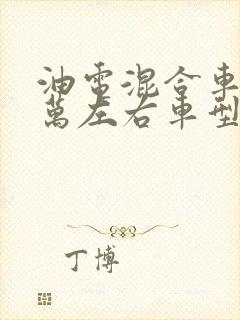 油電混合車
萬左右車型
丁博